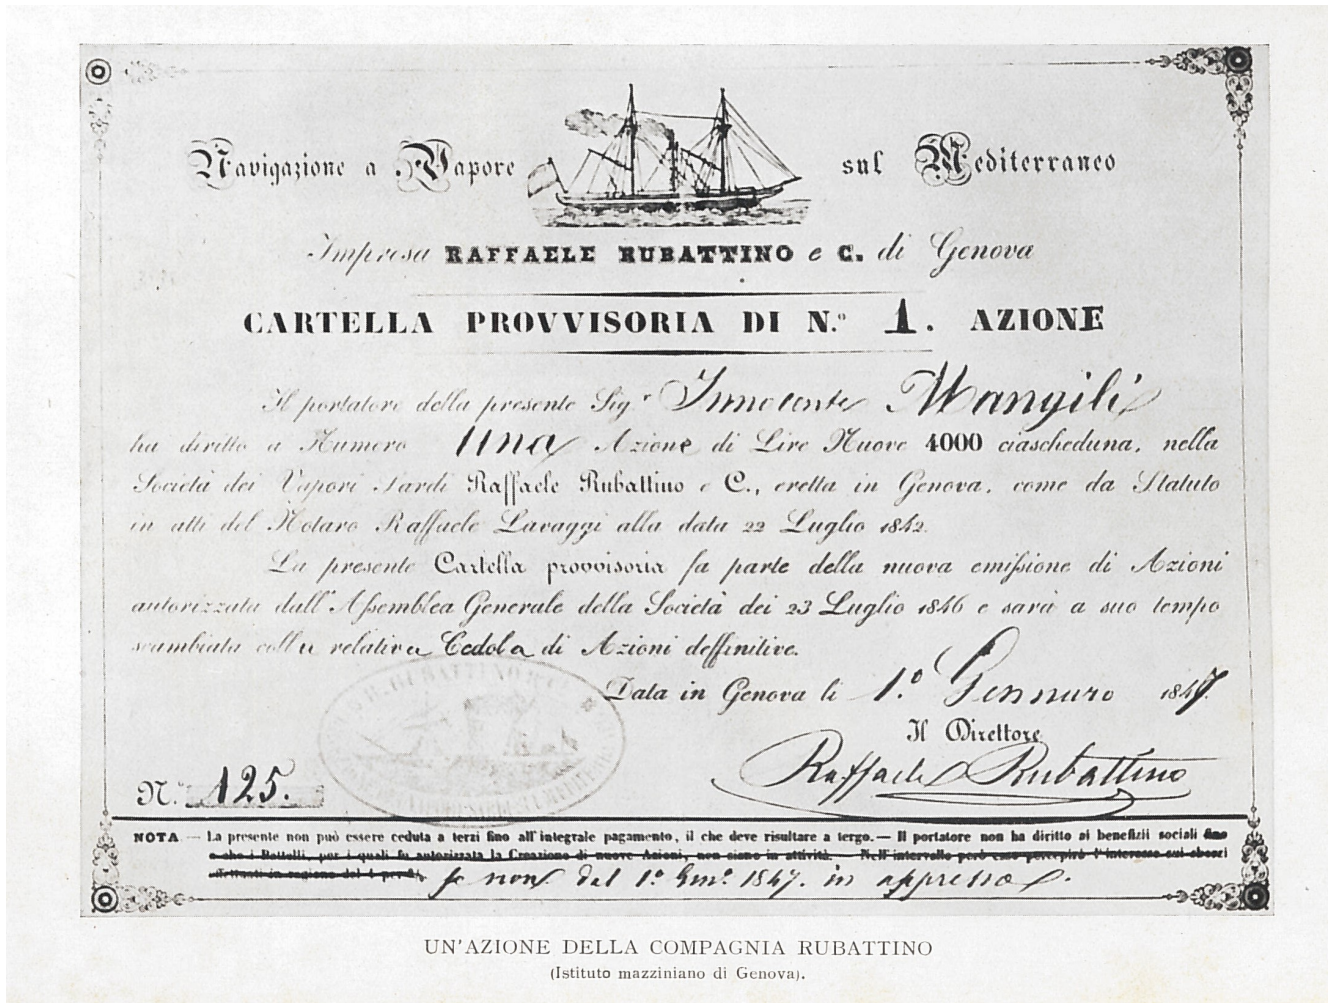 Navigazione a Vapore sul Mediterraneo
Impresa RAFFAELE RUBATTINO e C. di Genova
CARTELLA PROVVISORIA DI N.º 1. AZIONE
Il portatore della presente Sig.r Innocente Mangili
ha diritto a Numero una Azione di Lire Nuove 4000 ciascheduna, nella
Società dei Vapori Sardi Raffaele Rubattino e C., eretta in Genova, come da Statuto
in atti del Notaro Raffaele Lavaggi alla data 22 Luglio 1842.
La presente Cartella provvisoria fa parte della nuova emissione di Azioni
autorizzata dall'Assemblea Generale della Società dei 23 Luglio 1846 e sarà a suo tempo
scambiata colla relativa Cedola di Azioni deffinitive.
Data in Genova li 1.º Gennaro 1847.
Il Direttore
Raffaele Rubattino
N.º 125.
NOTA — La presente non può essere ceduta a terzi fino all'integrale pagamento, il che deve risultare a tergo. — Il portatore non ha diritto ai benefizii sociali fino
a che i Battelli, per i quali fu autorizzata la Creazione di nuove Azioni, non siano in attività. — Nell'intervallo però esso percepirà l'interesse sui sborsi
effettuati in ragione del 4 per %. se non dal 1.º Genn.º 1847. in appresso.
UN'AZIONE DELLA COMPAGNIA RUBATTINO
(Istituto mazziniano di Genova).